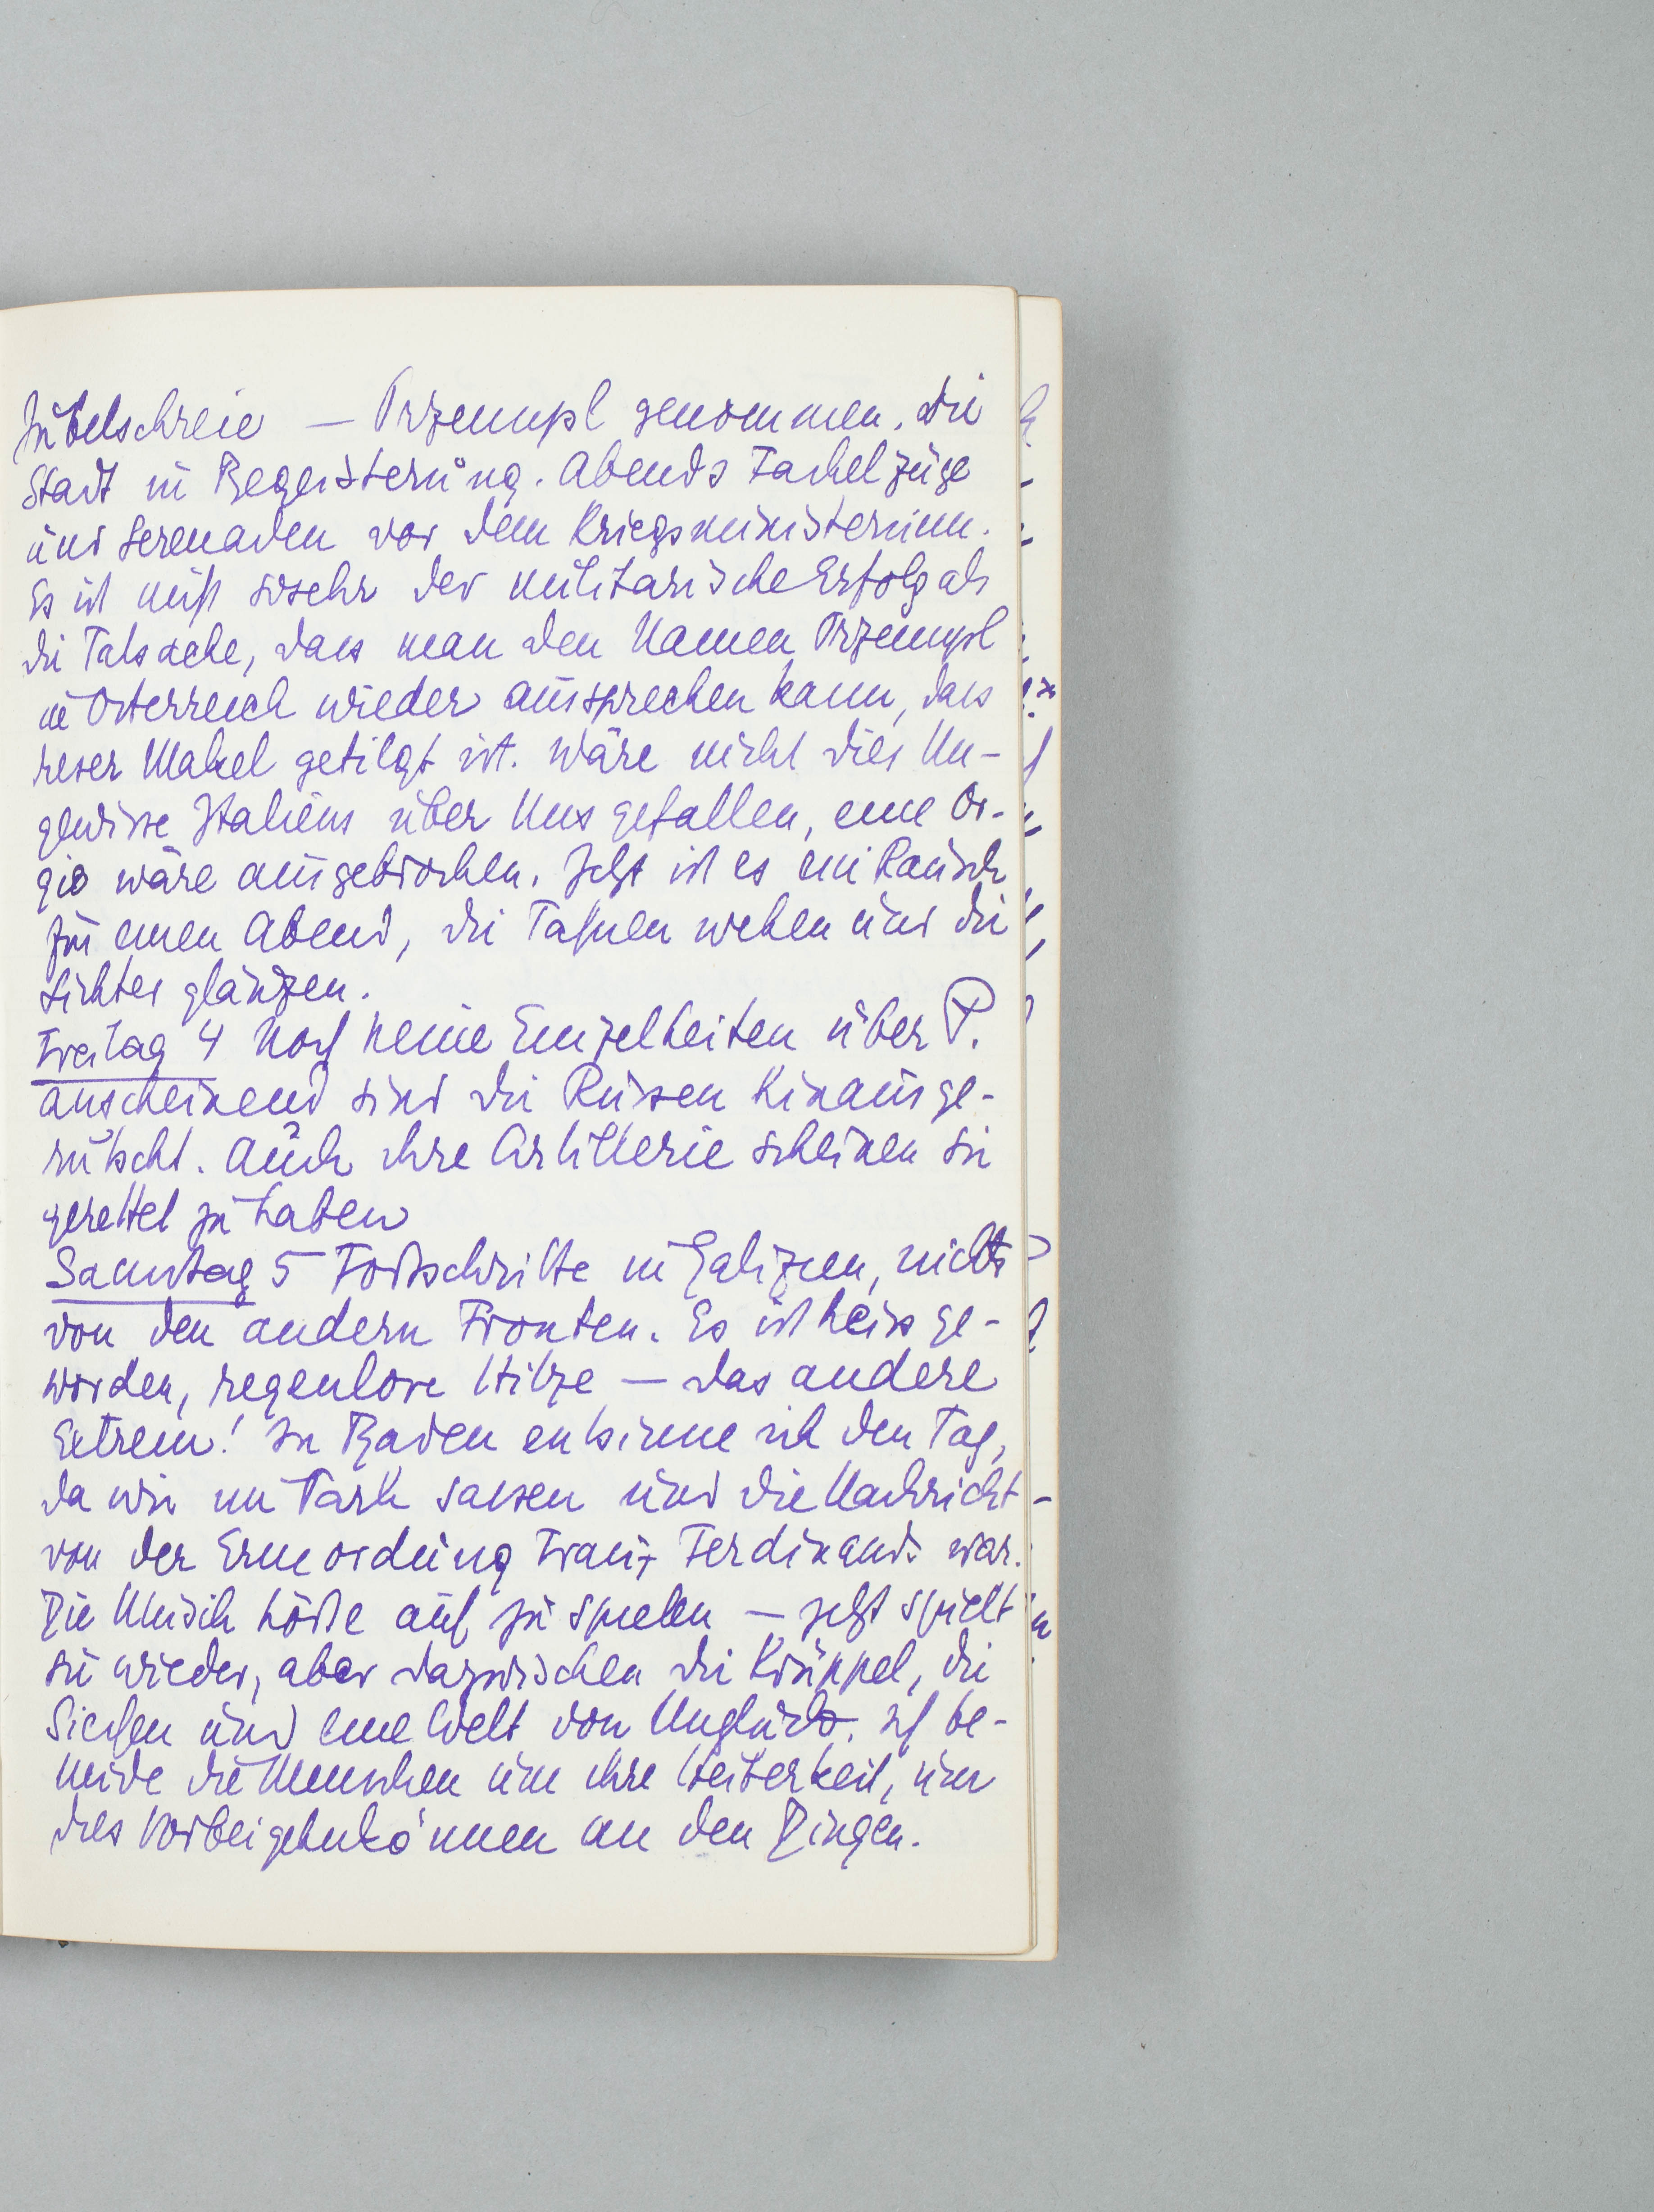 Jubelschreie – Przemysl genommen. Die
Stadt in Begeisterung. Abends Fackelzüge
und Serenaden vor dem Kriegsministerium.
Es ist nicht sosehr der militärische Erfolg als
die Tatsache, dass man den Namen Przemysl
in Österreich wieder aussprechen kann, dass
dieser Makel getilgt ist. Wäre nicht dies Un-
gewisse Italiens über Uns gefallen, eine Or-
gie wäre ausgebrochen. Jetzt ist es ein Rausch
für einen Abend, die Fahnen wehen und die
Lichter glänzen.
Freitag 4 Noch keine Einzelheiten über P.
anscheinend sind die Russen hinausge-
rutscht. Auch ihre Artillerie scheinen sie
gerettet zu haben
Samstag 5 Fortschritte in Galizien, nichts
von den andern Fronten. Es ist heiss ge-
worden, regenlose Hitze – das andere
Extrem! In Baden entsinne ich den Tag,
da wir im Park sassen und die Nachricht
von der Ermordung Franz Ferdinands war.
Die Musik hörte auf zu spielen – jetzt spielt
sie wieder, aber dazwischen die Krüppel, die
Siechen und eine Welt von Unglück. Ich be-
neide die Menschen um ihre Heiterkeit, um
dies Vorbeigehnkönnen an den Dingen.